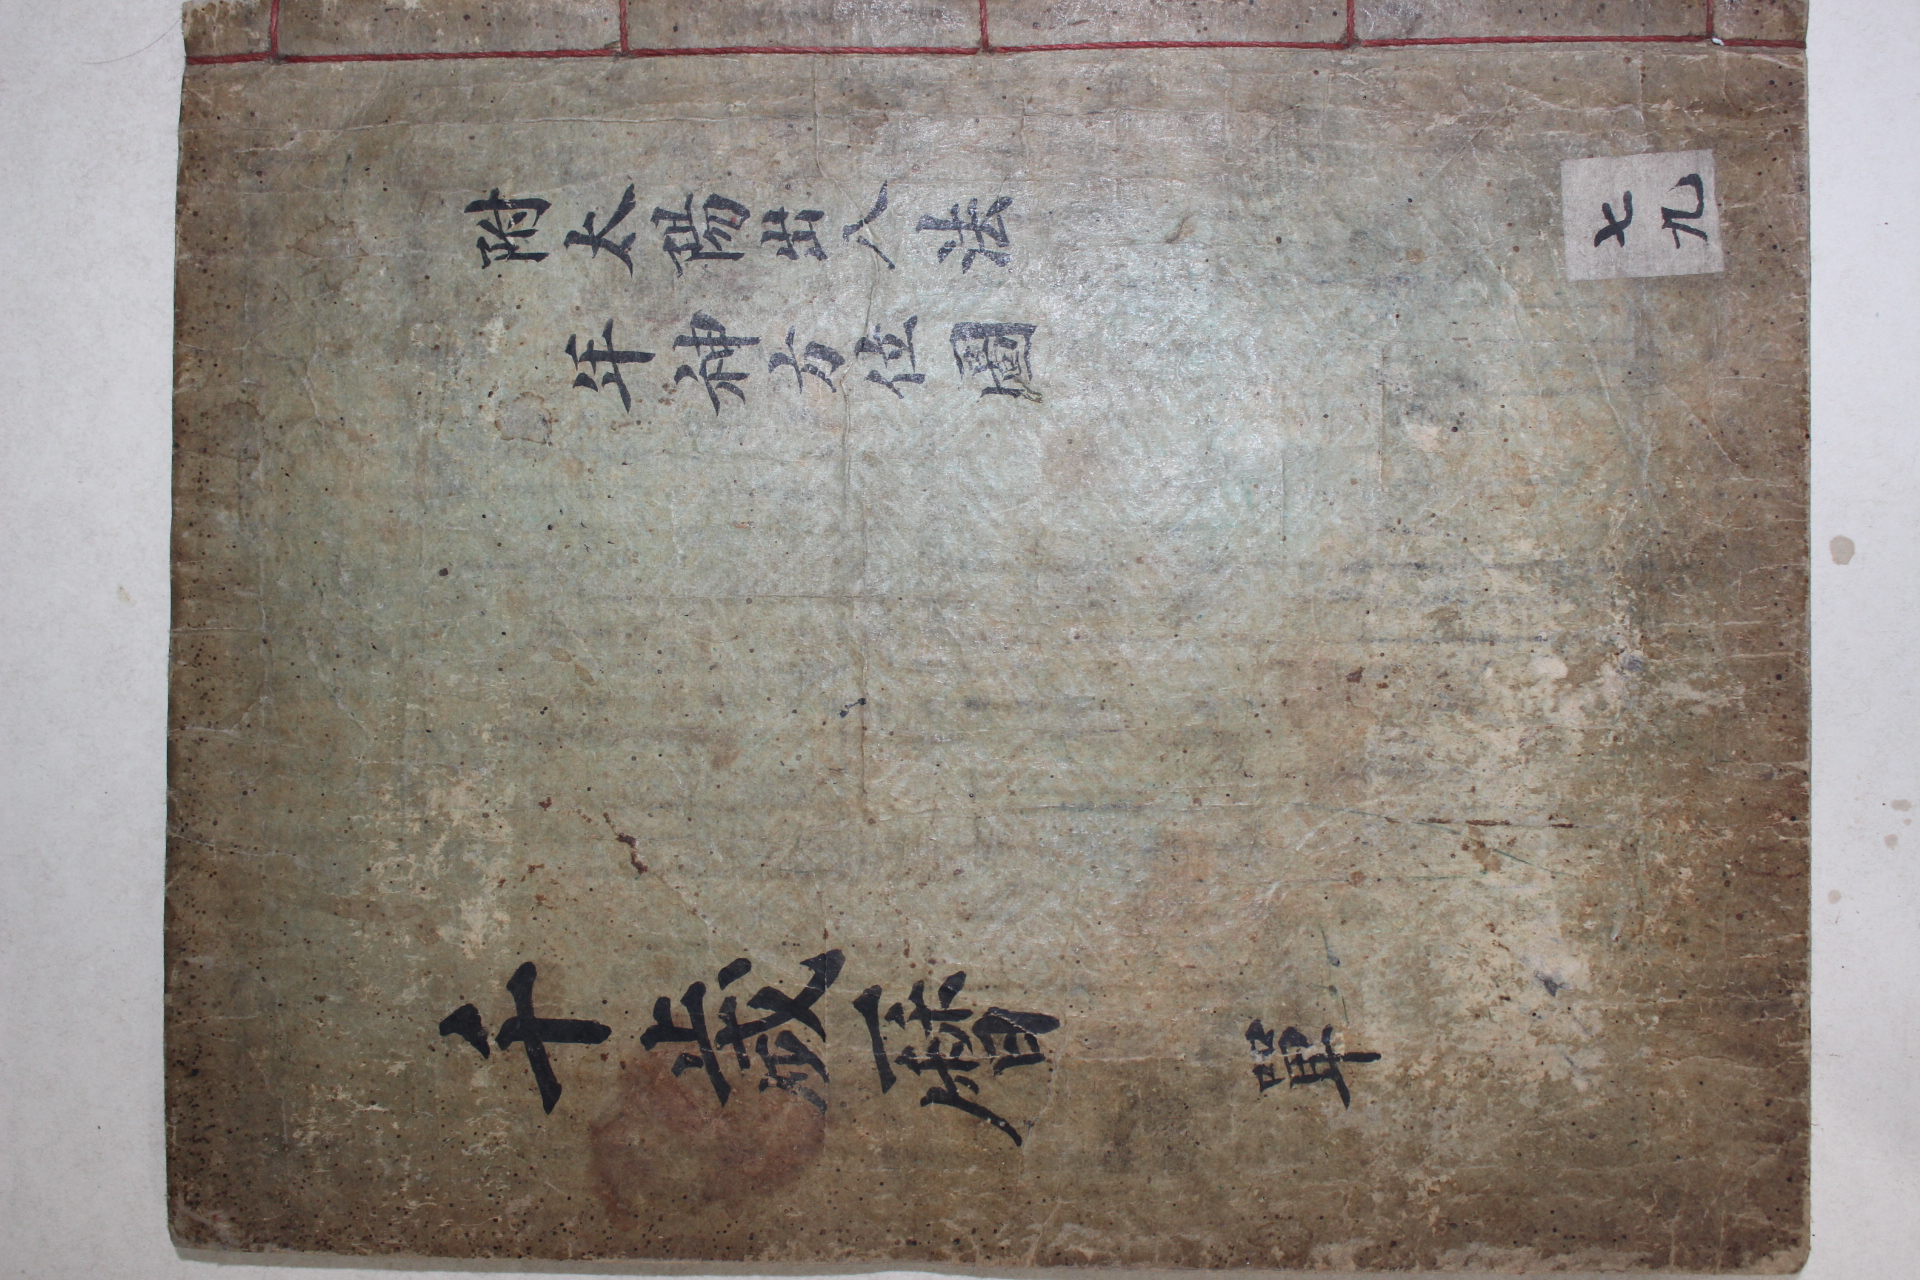 附太陽出入法
年神方位圖
千歲曆 單
七九